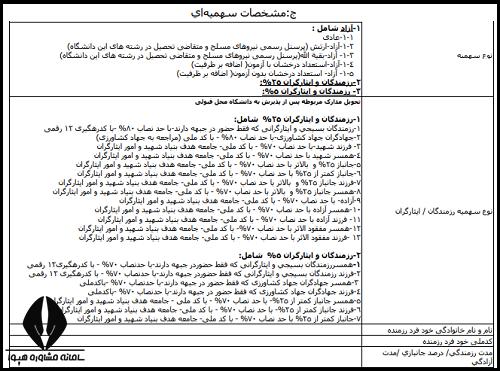 ج:مشخصات سهمیه‌اي
نوع سهمیه
۱-آزاد شامل :
۱-۱-عادی
۲-۱-آزاد-ارتش (پرسنل رسمی نیروهای مسلح و متقاضی تحصیل در رشته های این دانشگاه)
۳-۱-آزاد-بقیه الله(پرسنل رسمی نیروهای مسلح و متقاضی تحصیل در رشته های این دانشگاه)
٤-۱-آزاد-استعداد درخشان با آزمون( اضافه بر ظرفیت)
۵-۱- آزاد- استعداد درخشان بدون آزمون( اضافه بر ظرفیت)
۲-رزمندگان و ایثارگران ۲۵%:
۳- رزمندگان و ایثارگران ۵%:
نوع سهمیه رزمندگان / ایثارگران
تحویل مدارک مربوطه پس از پذیرش به دانشگاه محل قبولی
۱-رزمندگان و ایثارگران ۲۵% شامل:
۱-رزمندگان بسیجی و ایثارگرانی که فقط حضور در جبهه دارند-با حد نصاب ۸۰% -با کدرهگیری ۱۲ رقمی
۲-جهادگران جهاد کشاورزی-با حد نصاب ۸۰% - با کد ملی (مراجعه به جهاد کشاورزی)
۳- فرزند شهید-با حد نصاب ۷۰% - با کد ملی- جامعه هدف بنیاد شهید و امور ایثارگران
٤-همسر شهید با حد نصاب ۷۰% - با کد ملی- جامعه هدف بنیاد شهید و امور ایثارگران
۵-جانباز ۲۵% و بالاتر با حد نصاب ۷۰% - با کد ملی- جامعه هدف بنیاد شهید و امور ایثارگران
۶-جانباز کمتر از ۲۵% با حد نصاب ۷۰% - با کد ملی- جامعه هدف بنیاد شهید و امور ایثارگران
۷-فرزند جانباز ۲۵% و بالاتر با حد نصاب ۷۰% - با کد ملی- جامعه هدف بنیاد شهید و امور ایثارگران
۸-همسر جانباز ۲۵% و بالاتر با حد نصاب ۷۰% - با کد ملی- جامعه هدف بنیاد شهید و امور ایثارگران
۹-آزاده- با حد نصاب ۷۰% - با کد ملی- جامعه هدف بنیاد شهید و امور ایثارگران
۱۰-همسر آزاده با حد نصاب ۷۰% - با کد ملی- جامعه هدف بنیاد شهید و امور ایثارگران
۱۱- فرزند آزاده با حد نصاب ۷۰% - با کد ملی- جامعه هدف بنیاد شهید و امور ایثارگران
۱۲-همسر مفقود الاثر با حد نصاب ۷۰% - با کد ملی- جامعه هدف بنیاد شهید و امور ایثارگران
۱۳- فرزند مفقود الاثر با حد نصاب ۷۰% - با کد ملی- جامعه هدف بنیاد شهید و امور ایثارگران
۲-رزمندگان و ایثارگران ۵% شامل:
۱-همسررزمندگان بسیجی و ایثارگرانی که فقط حضوردر جبهه دارند-با حدنصاب ۷۰% - با کدرهگیری۱۲ رقمی
۲-فرزند رزمندگان بسیجی و ایثارگرانی که فقط حضوردر جبهه دارند-با حدنصاب ۷۰% - با کدرهگیری ۱۲ رقمی
۳-همسر جهادگران جهاد کشاورزی که فقط حضور در جبهه دارند-با حدنصاب ۷۰% -باکدملی
٤-فرزند جهادگران جهاد کشاورزی که فقط حضور در جبهه دارند-با حد نصاب ۷۰% -باکدملی
۵-همسر جانباز کمتر از ۲۵%- با حد نصاب ۷۰% - با کد ملی- جامعه هدف بنیاد شهید و امور ایثارگران
۶-فرزند جانباز کمتر از ۲۵%- با حد نصاب ۷۰% - با کد ملی- جامعه هدف بنیاد شهید و امور ایثارگران
۷-جانباز کمتر از ۲۵% با حد نصاب ۷۰% - با کد ملی- جامعه هدف بنیاد شهید و امور ایثارگران
نام و نام خانوادگی خود فرد رزمنده
کدملی خود فرد رزمنده
مدت رزمندگی/ درصد جانبازی /مدت
آزادگی
سامانه مشاوره هیوا